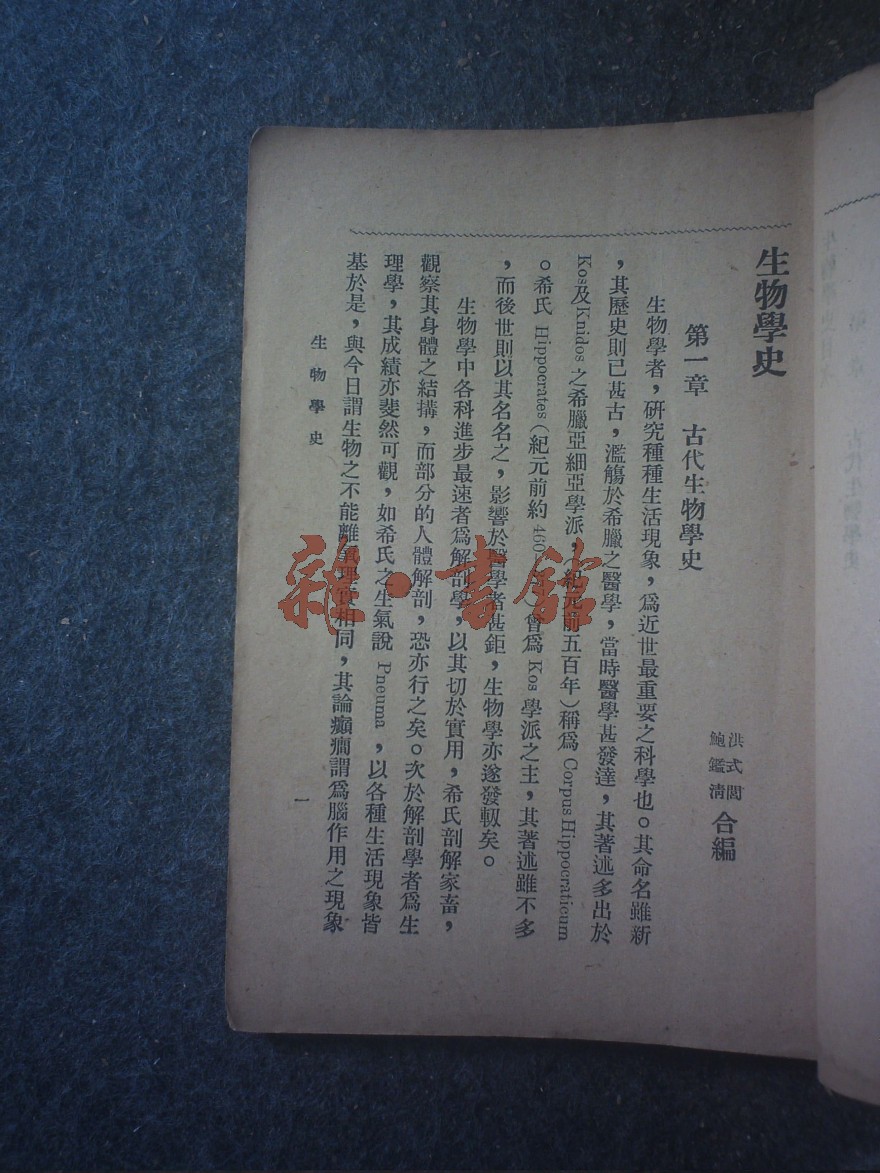 生物學史
洪式閭
鮑鑑淸
合編
第一章 古代生物學史
生物學者，硏究種種生活現象，爲近世最重要之科學也。其命名雖新
，其歷史則已甚古，濫觴於希臘之醫學，當時醫學甚發達，其著述多出於
Kos及Knidos之希臘亞細亞學派，（紀元前五百年）稱爲Corpus Hippocraticum
。希氏 Hippocrates（紀元前約460 ）曾爲 Kos 學派之主，其著述雖不多
，而後世則以其名名之，影響於醫學者甚鉅，生物學亦遂發軔矣。
生物學中各科進步最速者爲解剖學，以其切於實用，希氏剖解家畜，
觀察其身體之結搆，而部分的人體解剖，恐亦行之矣。次於解剖學者爲生
理學，其成績亦斐然可觀，如希氏之生氣說 Pneuma，以各種生活現象皆
基於是，與今日謂生物之不能離氧理實相同，其論癲癇謂爲腦作用之現象
生物學史
一
雜·書館